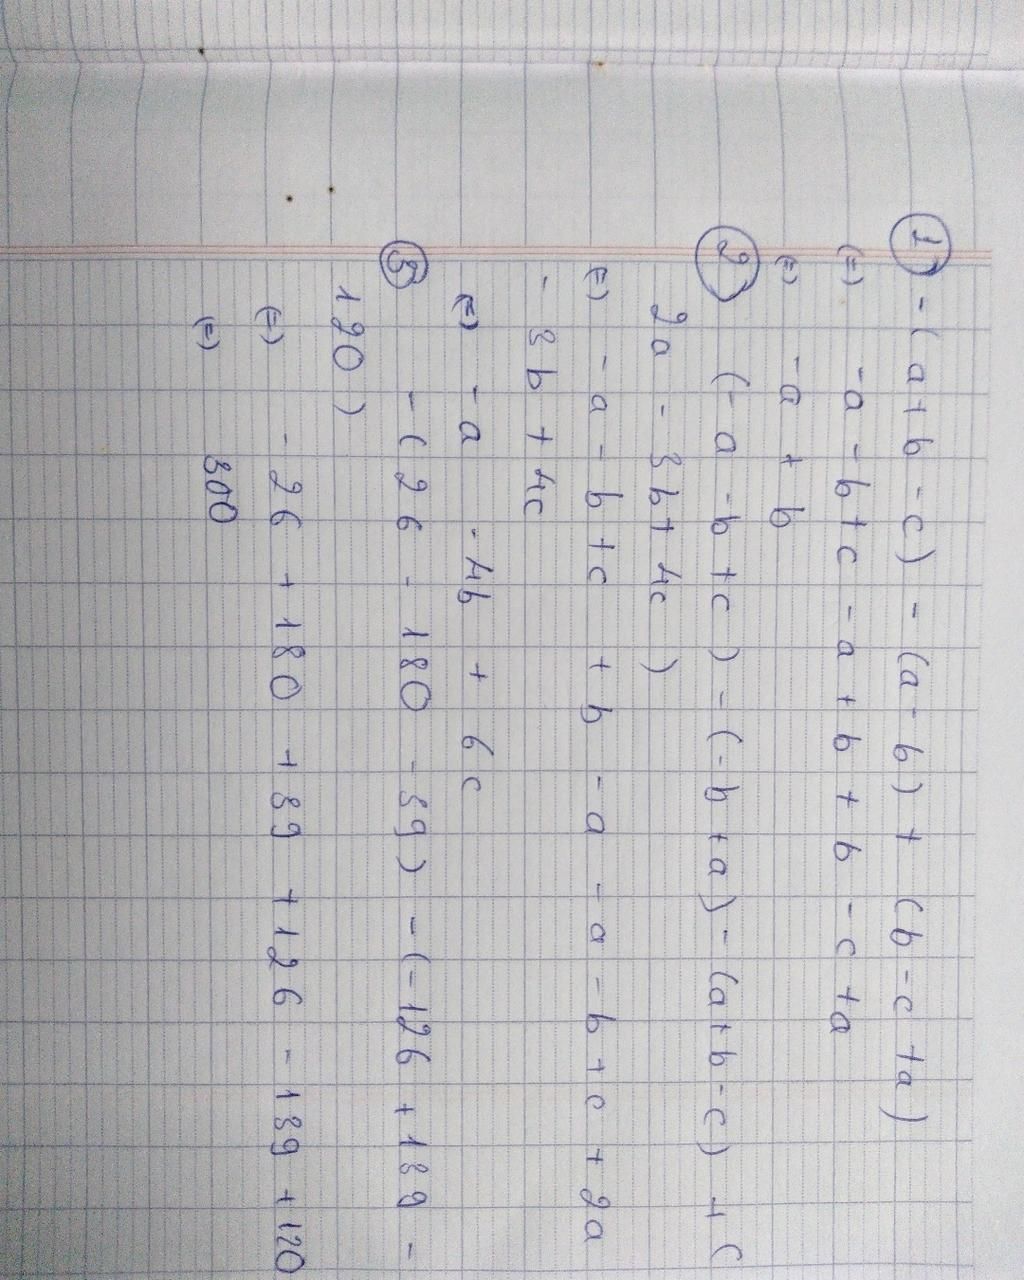 ① -(a+b-c) - (a-b) + (b-c+a)
(=) -a-b+c-a+b+b-c+a
(=) -a+b
② (-a-b+c)-(-b+a)-(a+b-c)+(
2a-3b+4c)
(=) -a-b+c+b-a-a-b+c+2a
-3b+4c
(=) -a-4b+6c
③ -(26-180-39)-(-126+139-
120)
(=) -26+180+39+126-139+120
(=) 300